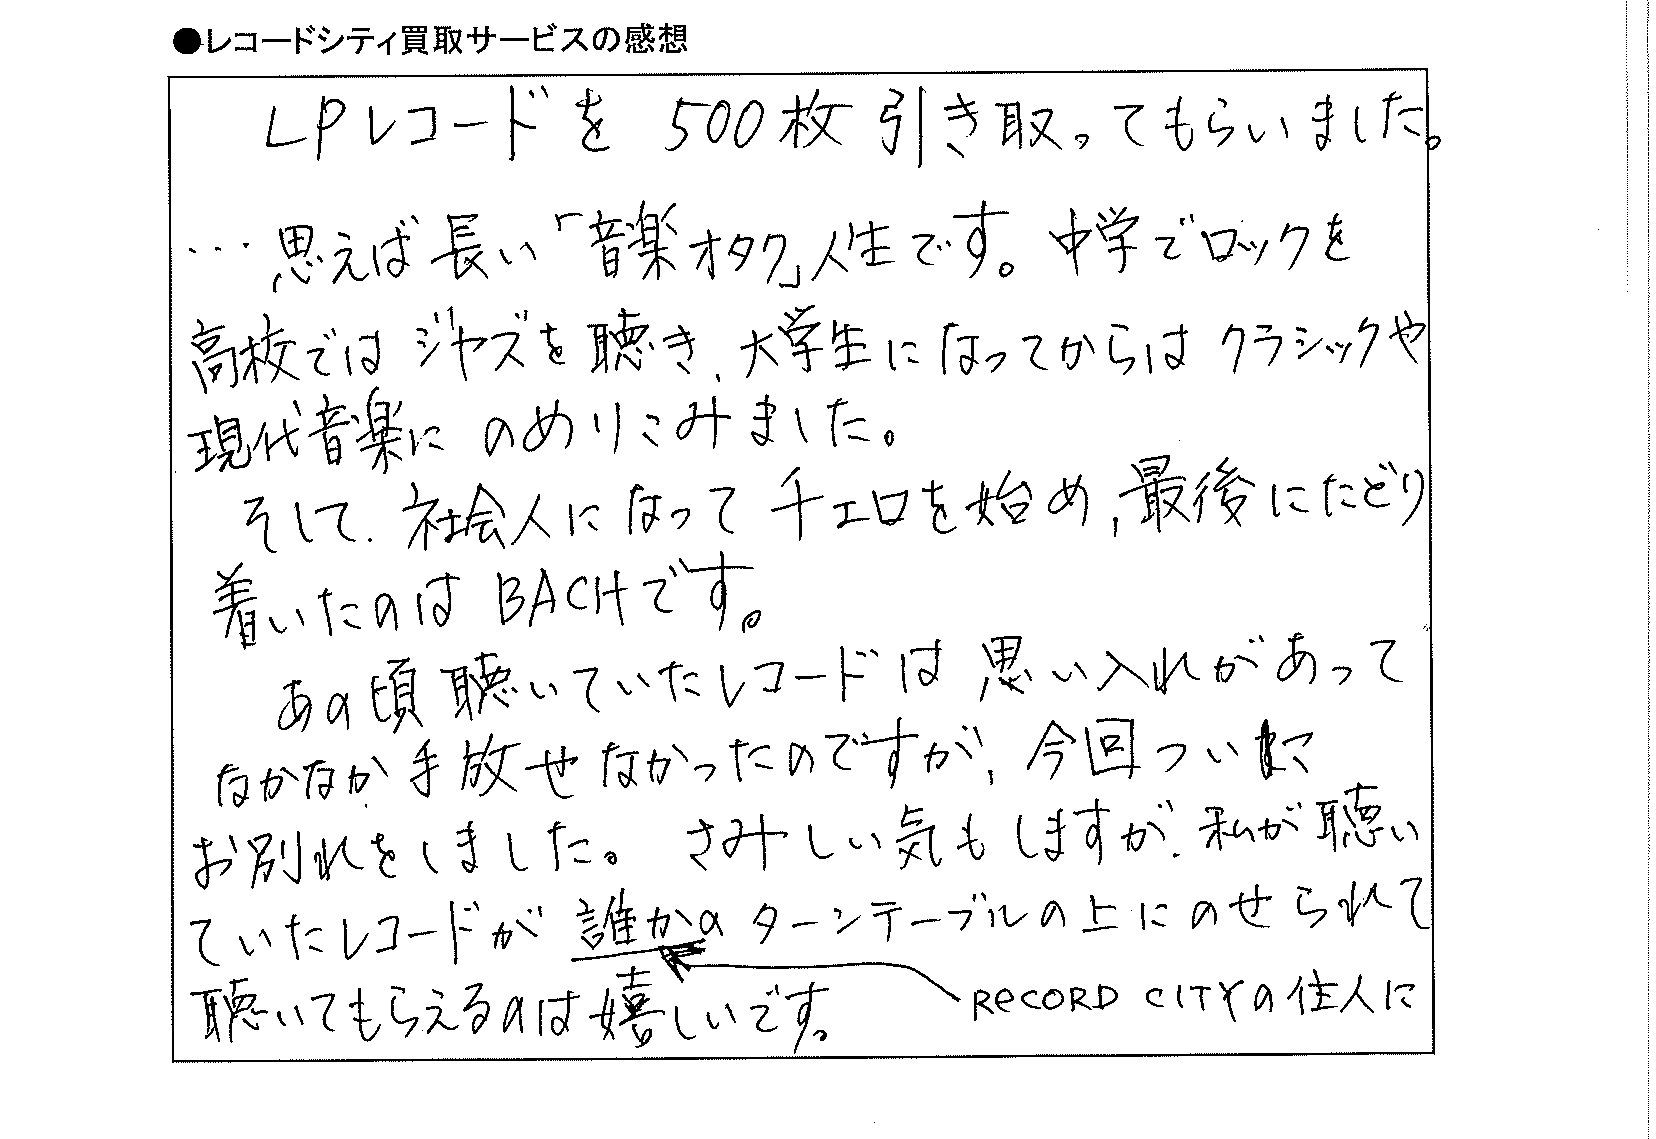 ●レコードシティ買取サービスの感想
LPレコードを 500枚 引き取ってもらいました。
…思えば長い「音楽オタク」人生です。中学でロックを
高校ではジャズを聴き、大学生になってからはクラシックや
現代音楽にのめりこみました。
そして、社会人になってチェロを始め、最後にたどり
着いたのはBACHです。
あの頃聴いていたレコードは思い入れがあって
なかなか手放せなかったのですが、今回ついに
お別れをしました。さみしい気もしますが、私が聴い
ていたレコードが誰かのターンテーブルの上にのせられて
聴いてもらえるのは嬉しいです。
RECORD CITYの住人に